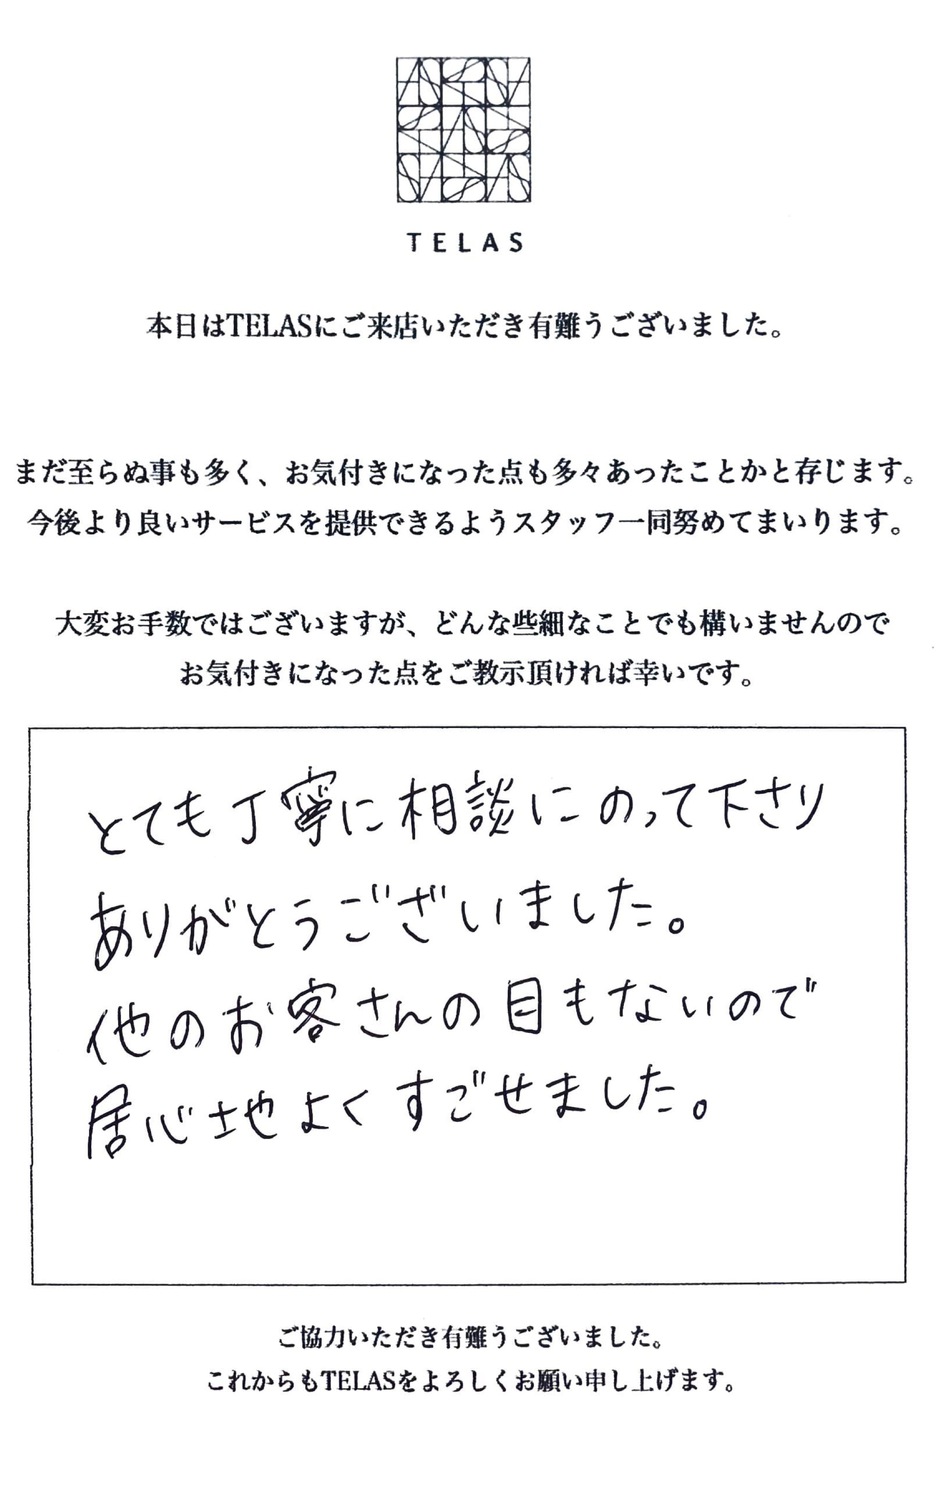 TELAS
本日はTELASにご来店いただき有難うございました。
まだ至らぬ事も多く、お気付きになった点も多々あったことかと存じます。
今後より良いサービスを提供できるようスタッフ一同努めてまいります。
大変お手数ではございますが、どんな些細なことでも構いませんので
お気付きになった点をご教示頂ければ幸いです。
とても丁寧に相談にのって下さり
ありがとうございました。
他のお客さんの目もないので
居心地よくすごせました。
ご協力いただき有難うございました。
これからもTELASをよろしくお願い申し上げます。